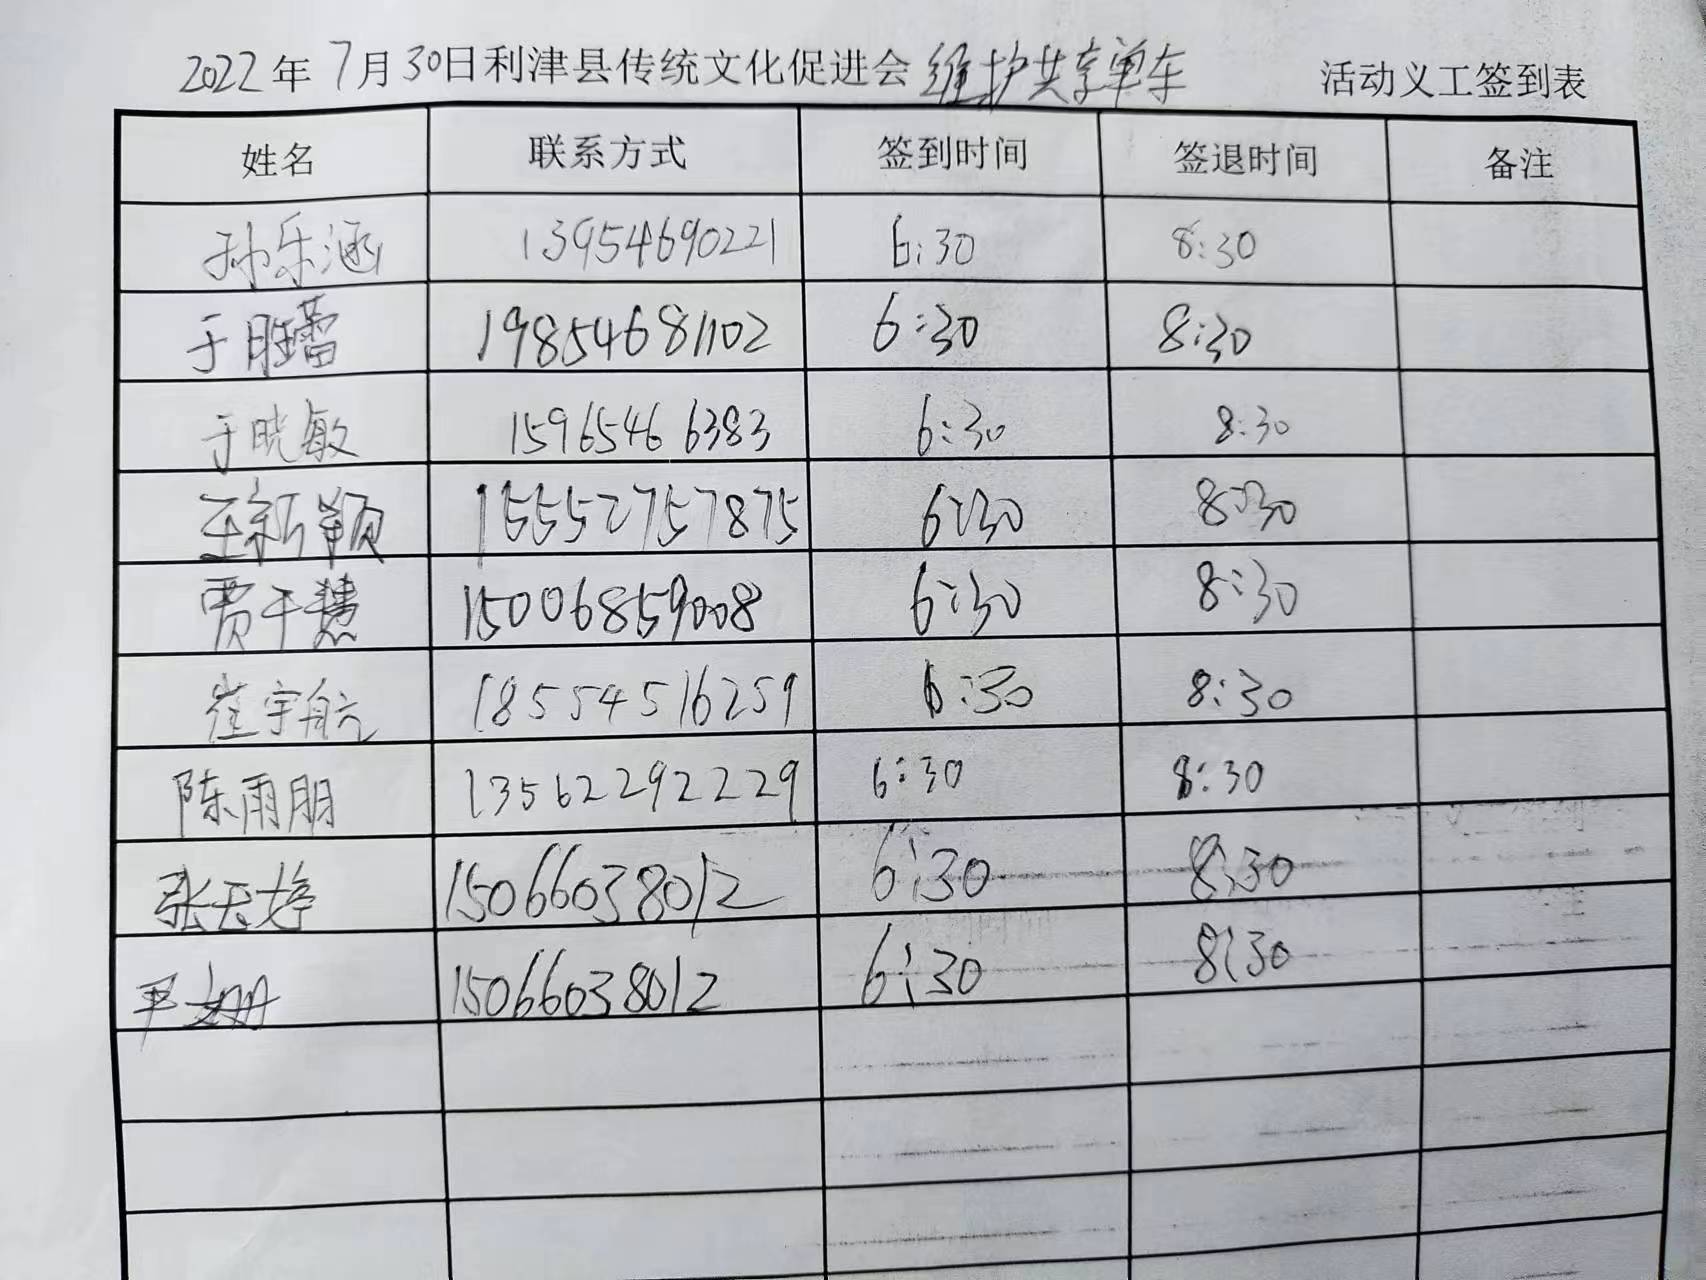 2022年7月30日利津县传统文化促进会维护共享单车 活动义工签到表
姓名 联系方式 签到时间 签退时间 备注
孙乐涵 13954690221 6:30 8:30
于胜蕾 19854681102 6:30 8:30
于晓敏 15965466383 6:30 8:30
王新颖 15552757875 6:30 8:30
贾千慧 15006859008 6:30 8:30
崔宇航 18554516259 6:30 8:30
陈雨朋 13562292229 6:30 8:30
张天婷 15066038012 6:30 8:30
尹姗 15066038012 6:30 8:30